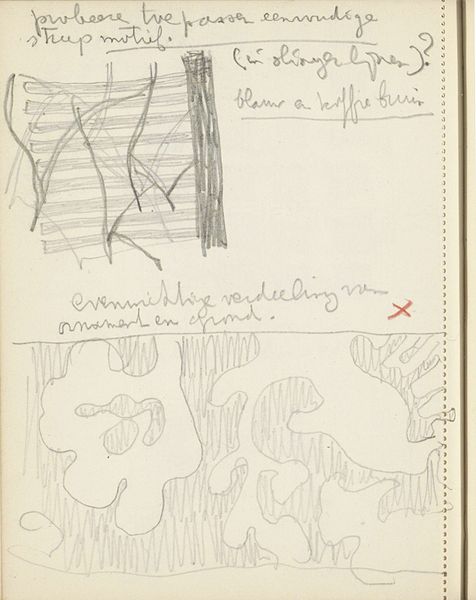 probeere toe passen eenvoudige
streep motief.
(in slinger lijnen)?
blauw en koffie bruin
evenwichtige verdeeling van
ornament en grond.